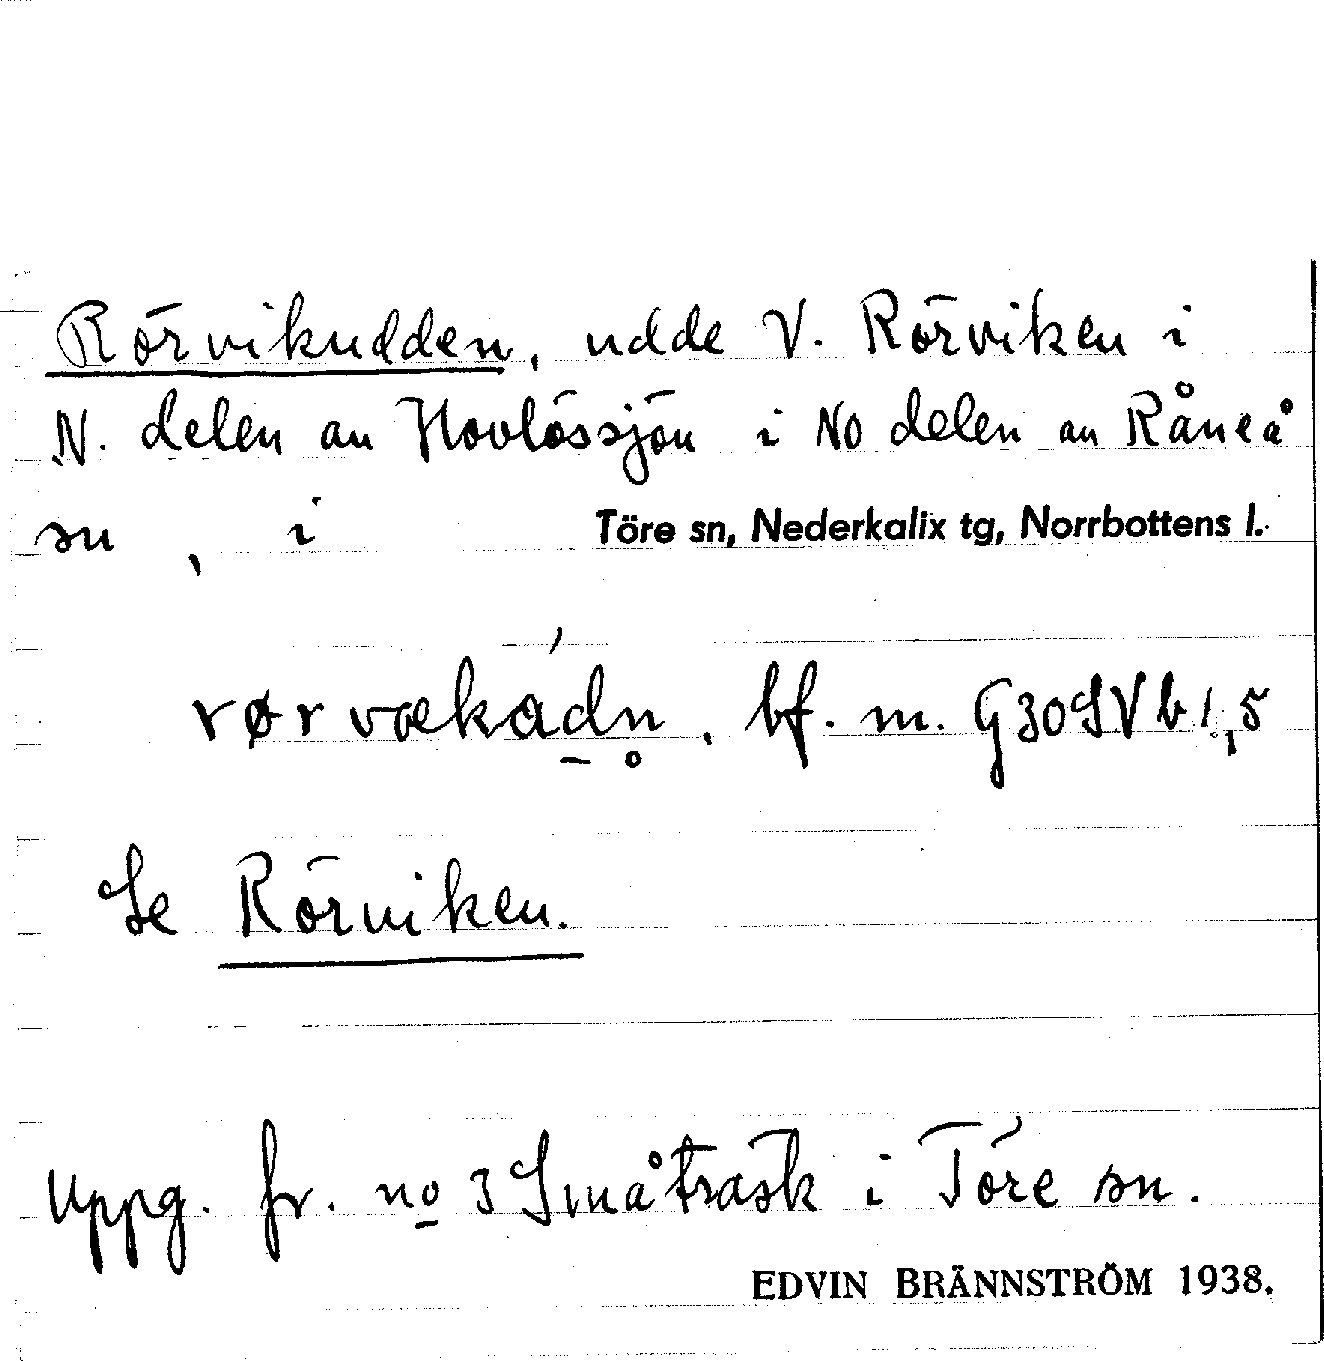 Rörvikudden, udde V. Rörviken i
N. delen av Hovlössjön i NO delen av Råneå
sn, i Töre sn, Nederkalix tg, Norrbottens l.
rørvækádn̥, bf. m. G30SVb1,5
Se Rörviken.
Uppg. fr. no 3 Småträsk i Töre sn.
EDVIN BRÄNNSTRÖM 1938.